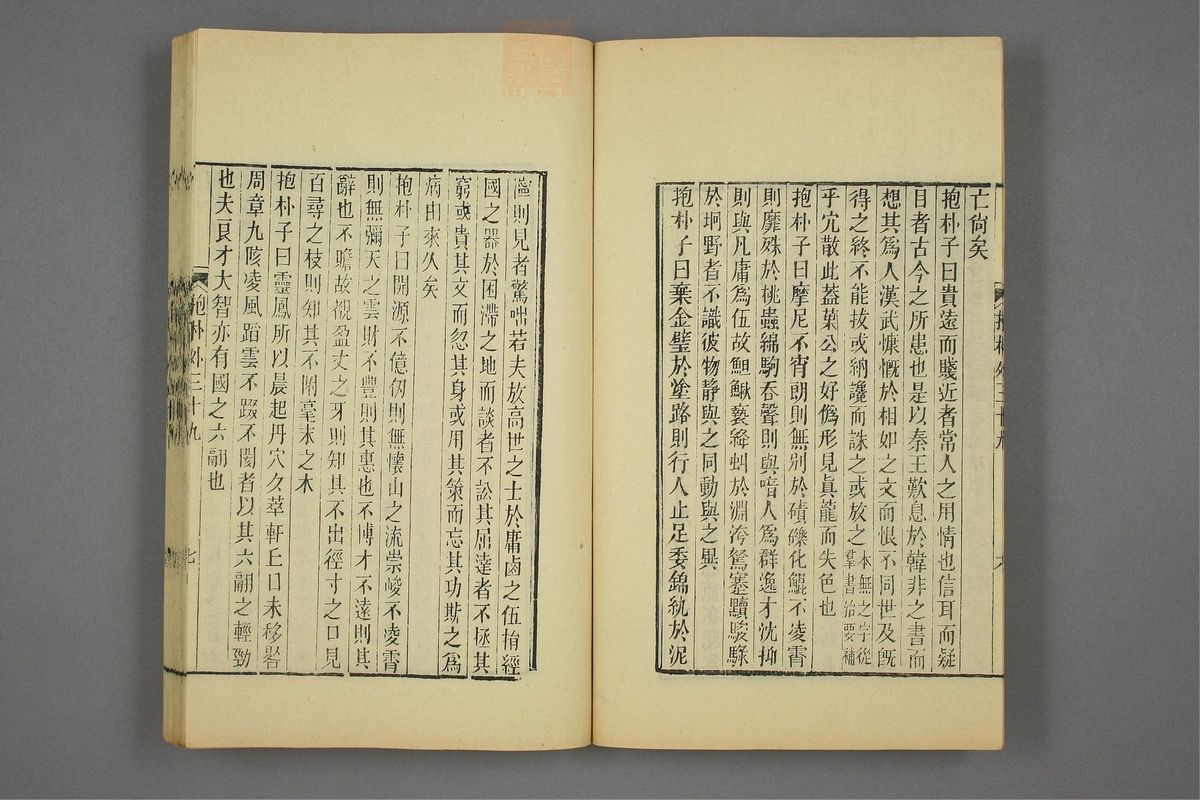 亡尙矣
抱朴子曰貴遠而賤近者常人之用情也信耳而疑
目者古今之所患也是以秦王歎息於韓非之書而
想其爲人漢武慷慨於相如之文而恨不同世及旣
得之終不能拔或納讒而誅之或放之本無之字從羣書治要補
乎宂散此葢葉公之好僞形見眞龍而失色也
抱朴子曰摩尼不宵朗則無别於磧礫化鯤不凌霄
則靡殊於桃蟲綿駒吞聲則與喑人爲群逸才沈抑
則與凡庸爲伍故鰋鰍褻蜂虯於淵洿駑蹇黷駿騄
於坰野者不識彼物靜與之同動與之異
抱朴子曰棄金璧於塗路則行人止足委錦紈於泥
抱朴外三十九
六
濘則見者驚咄若夫放高世之士於庸鹵之伍捐經
國之器於困滯之地而談者不訟其屈達者不拯其
窮或貴其文而忽其身或用其策而忘其功斯之爲
病由來久矣
抱朴子曰開源不億仞則無懷山之流崇峻不凌霄
則無彌天之雲財不豐則其惠也不博才不遠則其
辭也不贍故覩盈丈之牙則知其不出徑寸之口見
百尋之枝則知其不附毫末之木
抱朴子曰靈鳳所以晨起丹穴夕萃軒丘日未移晷
周章九陔凌風蹈雲不踬不閡者以其六翮之輕勁
也夫良才大智亦有國之六翮也
抱朴外三十九
七